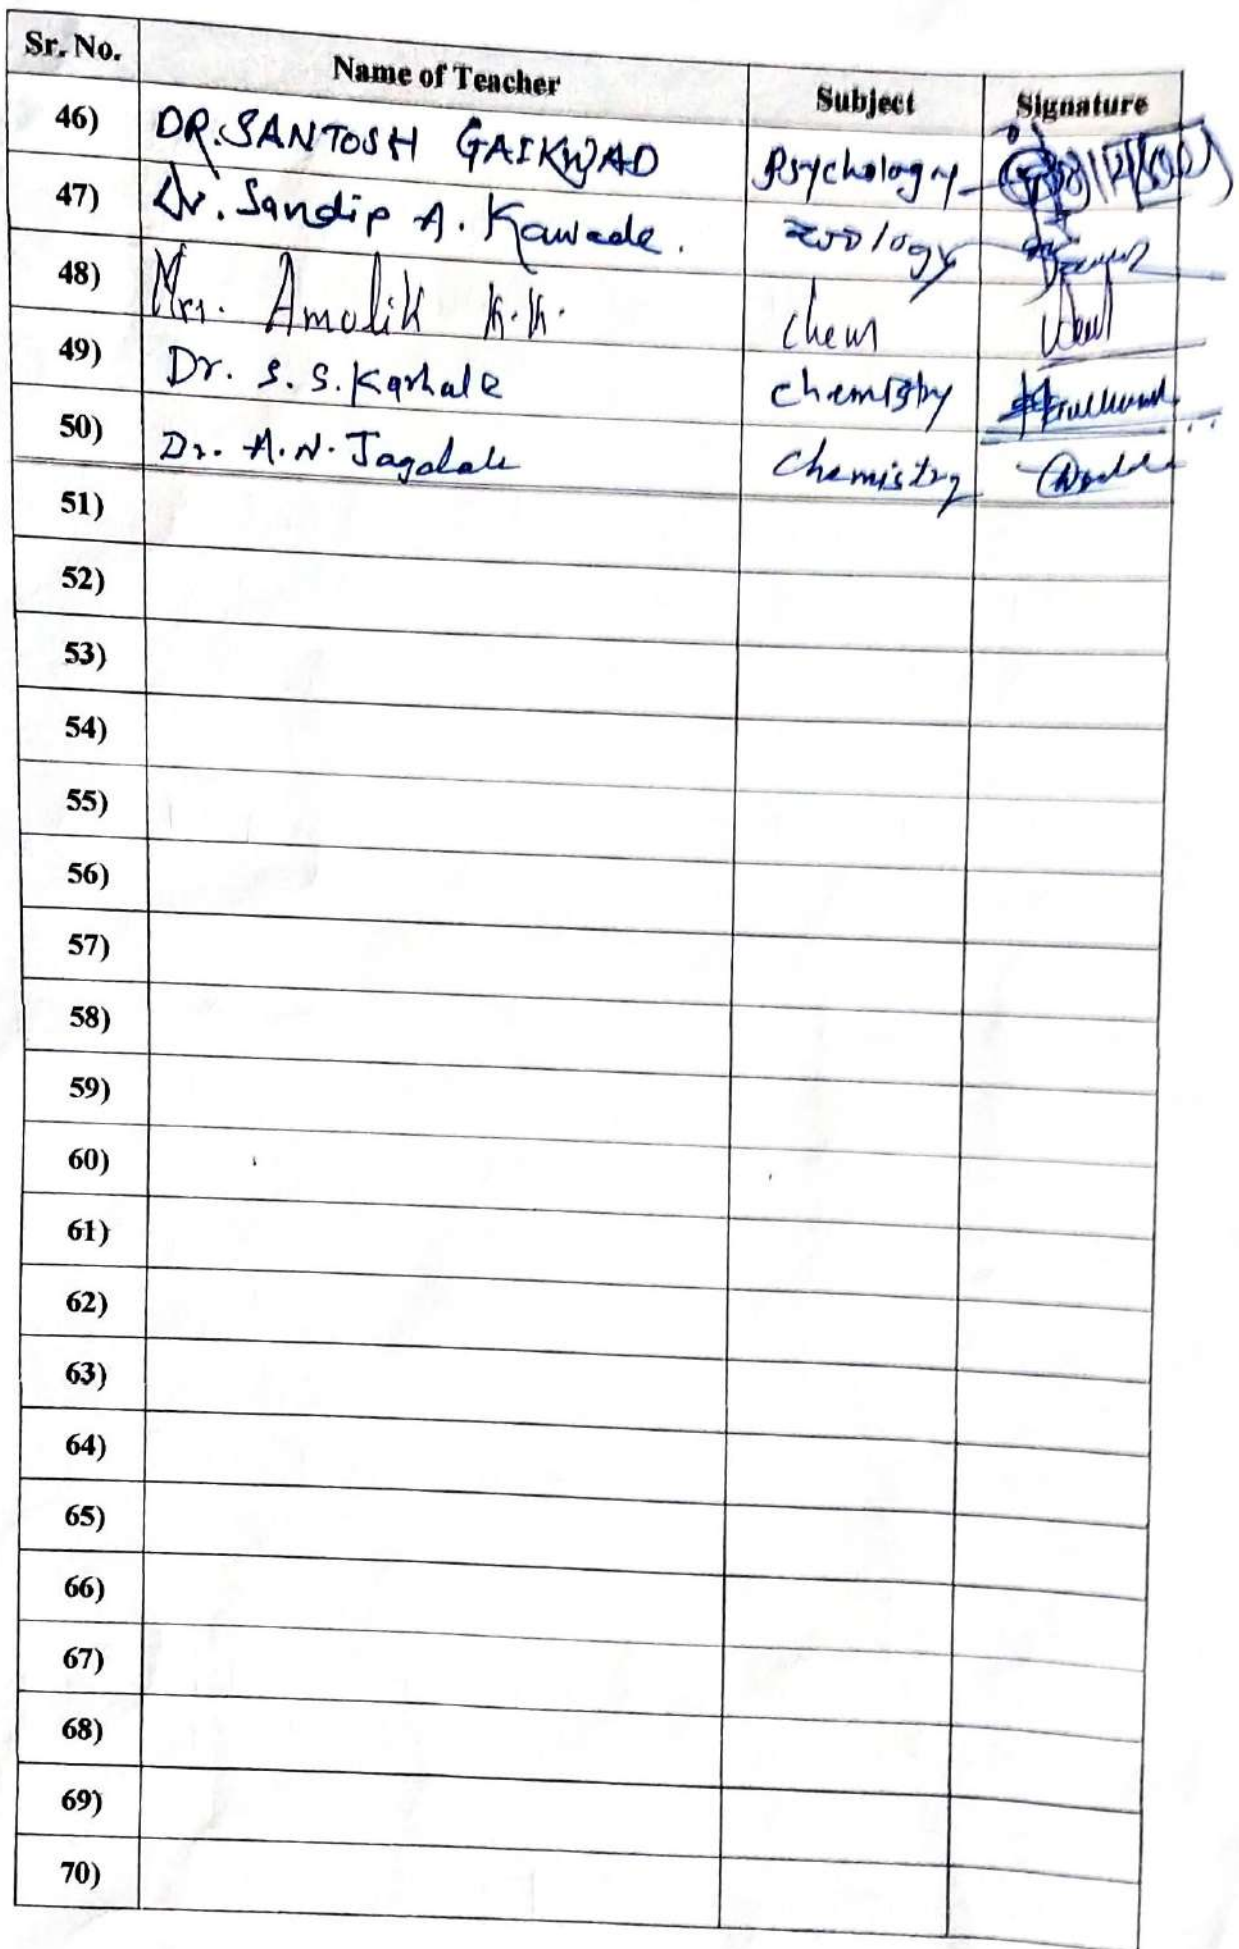 Sr. No. Name of Teacher Subject Signature
46) DR. SANTOSH GAIKWAD Psychology
47) Dr. Sandip A. Kawade. Zoology
48) Mrs. Amolik K.K. Chem
49) Dr. S. S. Karhale chemistry
50) Dr. A. N. Jagdale Chemistry
51)
52)
53)
54)
55)
56)
57)
58)
59)
60)
61)
62)
63)
64)
65)
66)
67)
68)
69)
70)